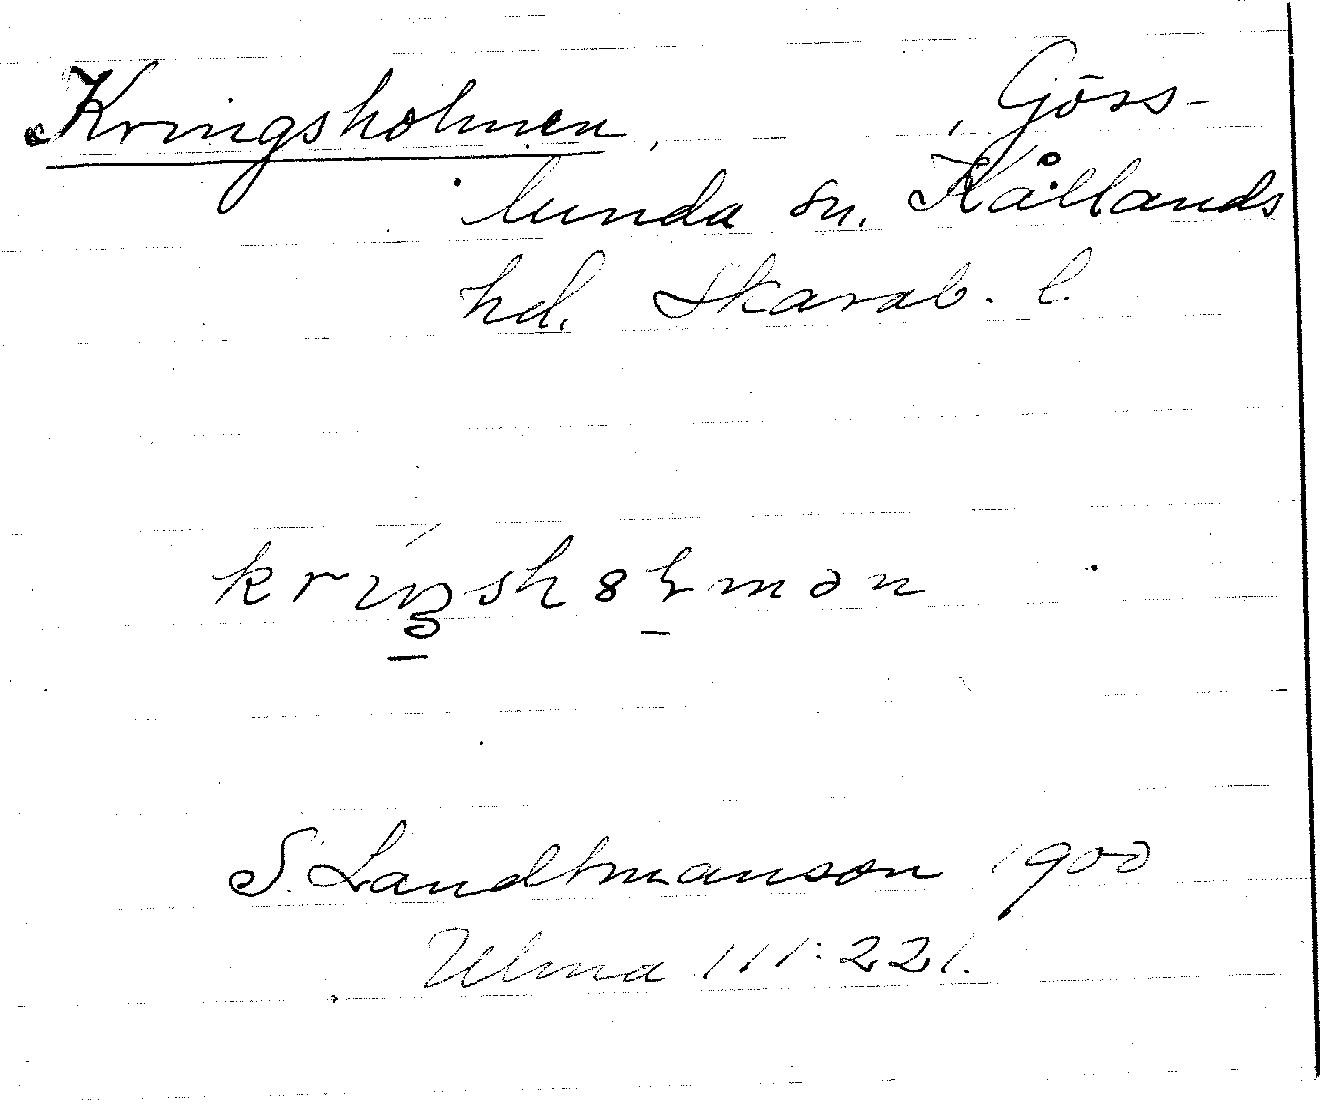 Kringsholmen, , Göss-
lunda sn. Kållands
hd. Skarab. l.
kríŋsh8ɬmən
S. Landtmanson 1900
Ulma 111:221.